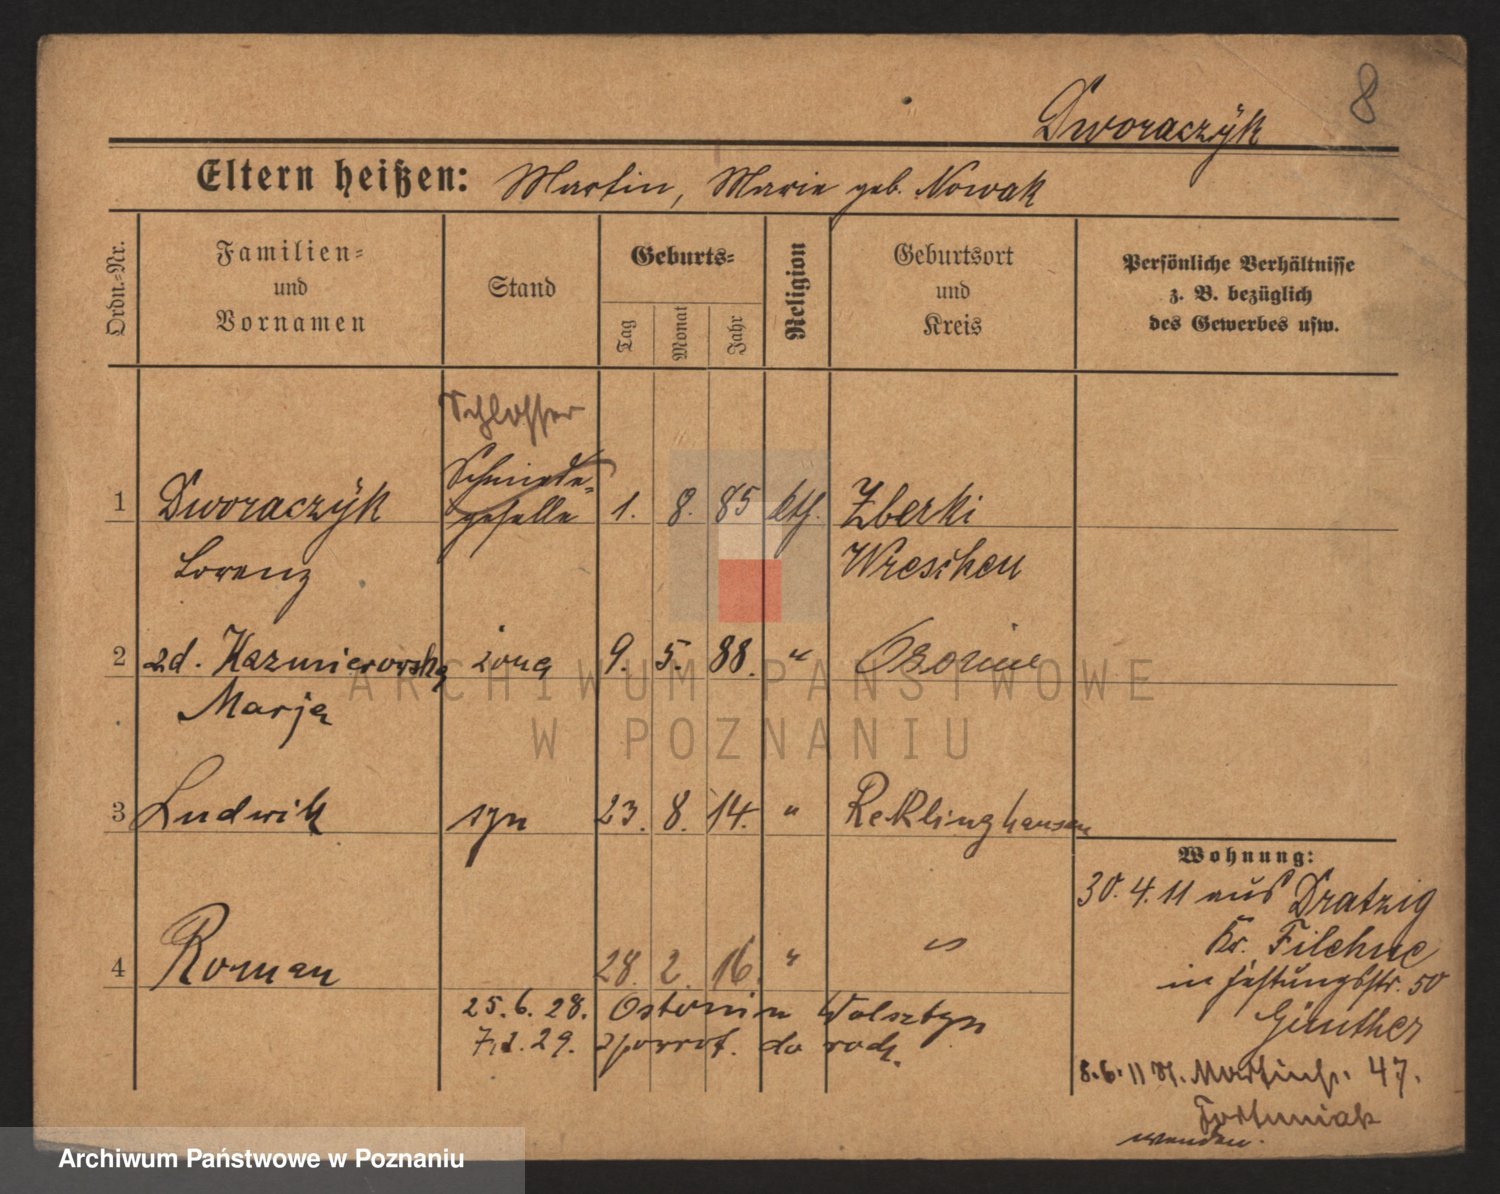 8
Dworaczÿk
Eltern heißen: Martin, Marie geb. Nowak
Ordn.-Nr.
Familien-
und
Vornamen
Stand
Geburts-
Tag
Monat
Jahr
Religion
Geburtsort
und
Kreis
Persönliche Verhältnisse
z. B. bezüglich
des Gewerbes usw.
Schlosser
Schmiede-
1 Dworaczÿk geselle 1. 8. 85 kth. Zberki
Lorenz Wreschen
2 2d. Kazmierowska żona 9. 5. 88. "
Marja
3 Ludwik syn 23. 8. 14. " Recklinghausen
4 Roman 28. 2. 16. " "
25.6.28. Ostonin Wolsztyn
7.1.29. zpowrot. do rodz.
Wohnung:
30.4.11 aus Dratzig
Kr. Filehne
in Festungsstr. 50
Günther
8.6.11 St. Martinstr. 47.
Fortuniak
wenden.
ARCHIWUM PAŃSTWOWE
W POZNANIU
Archiwum Państwowe w Poznaniu